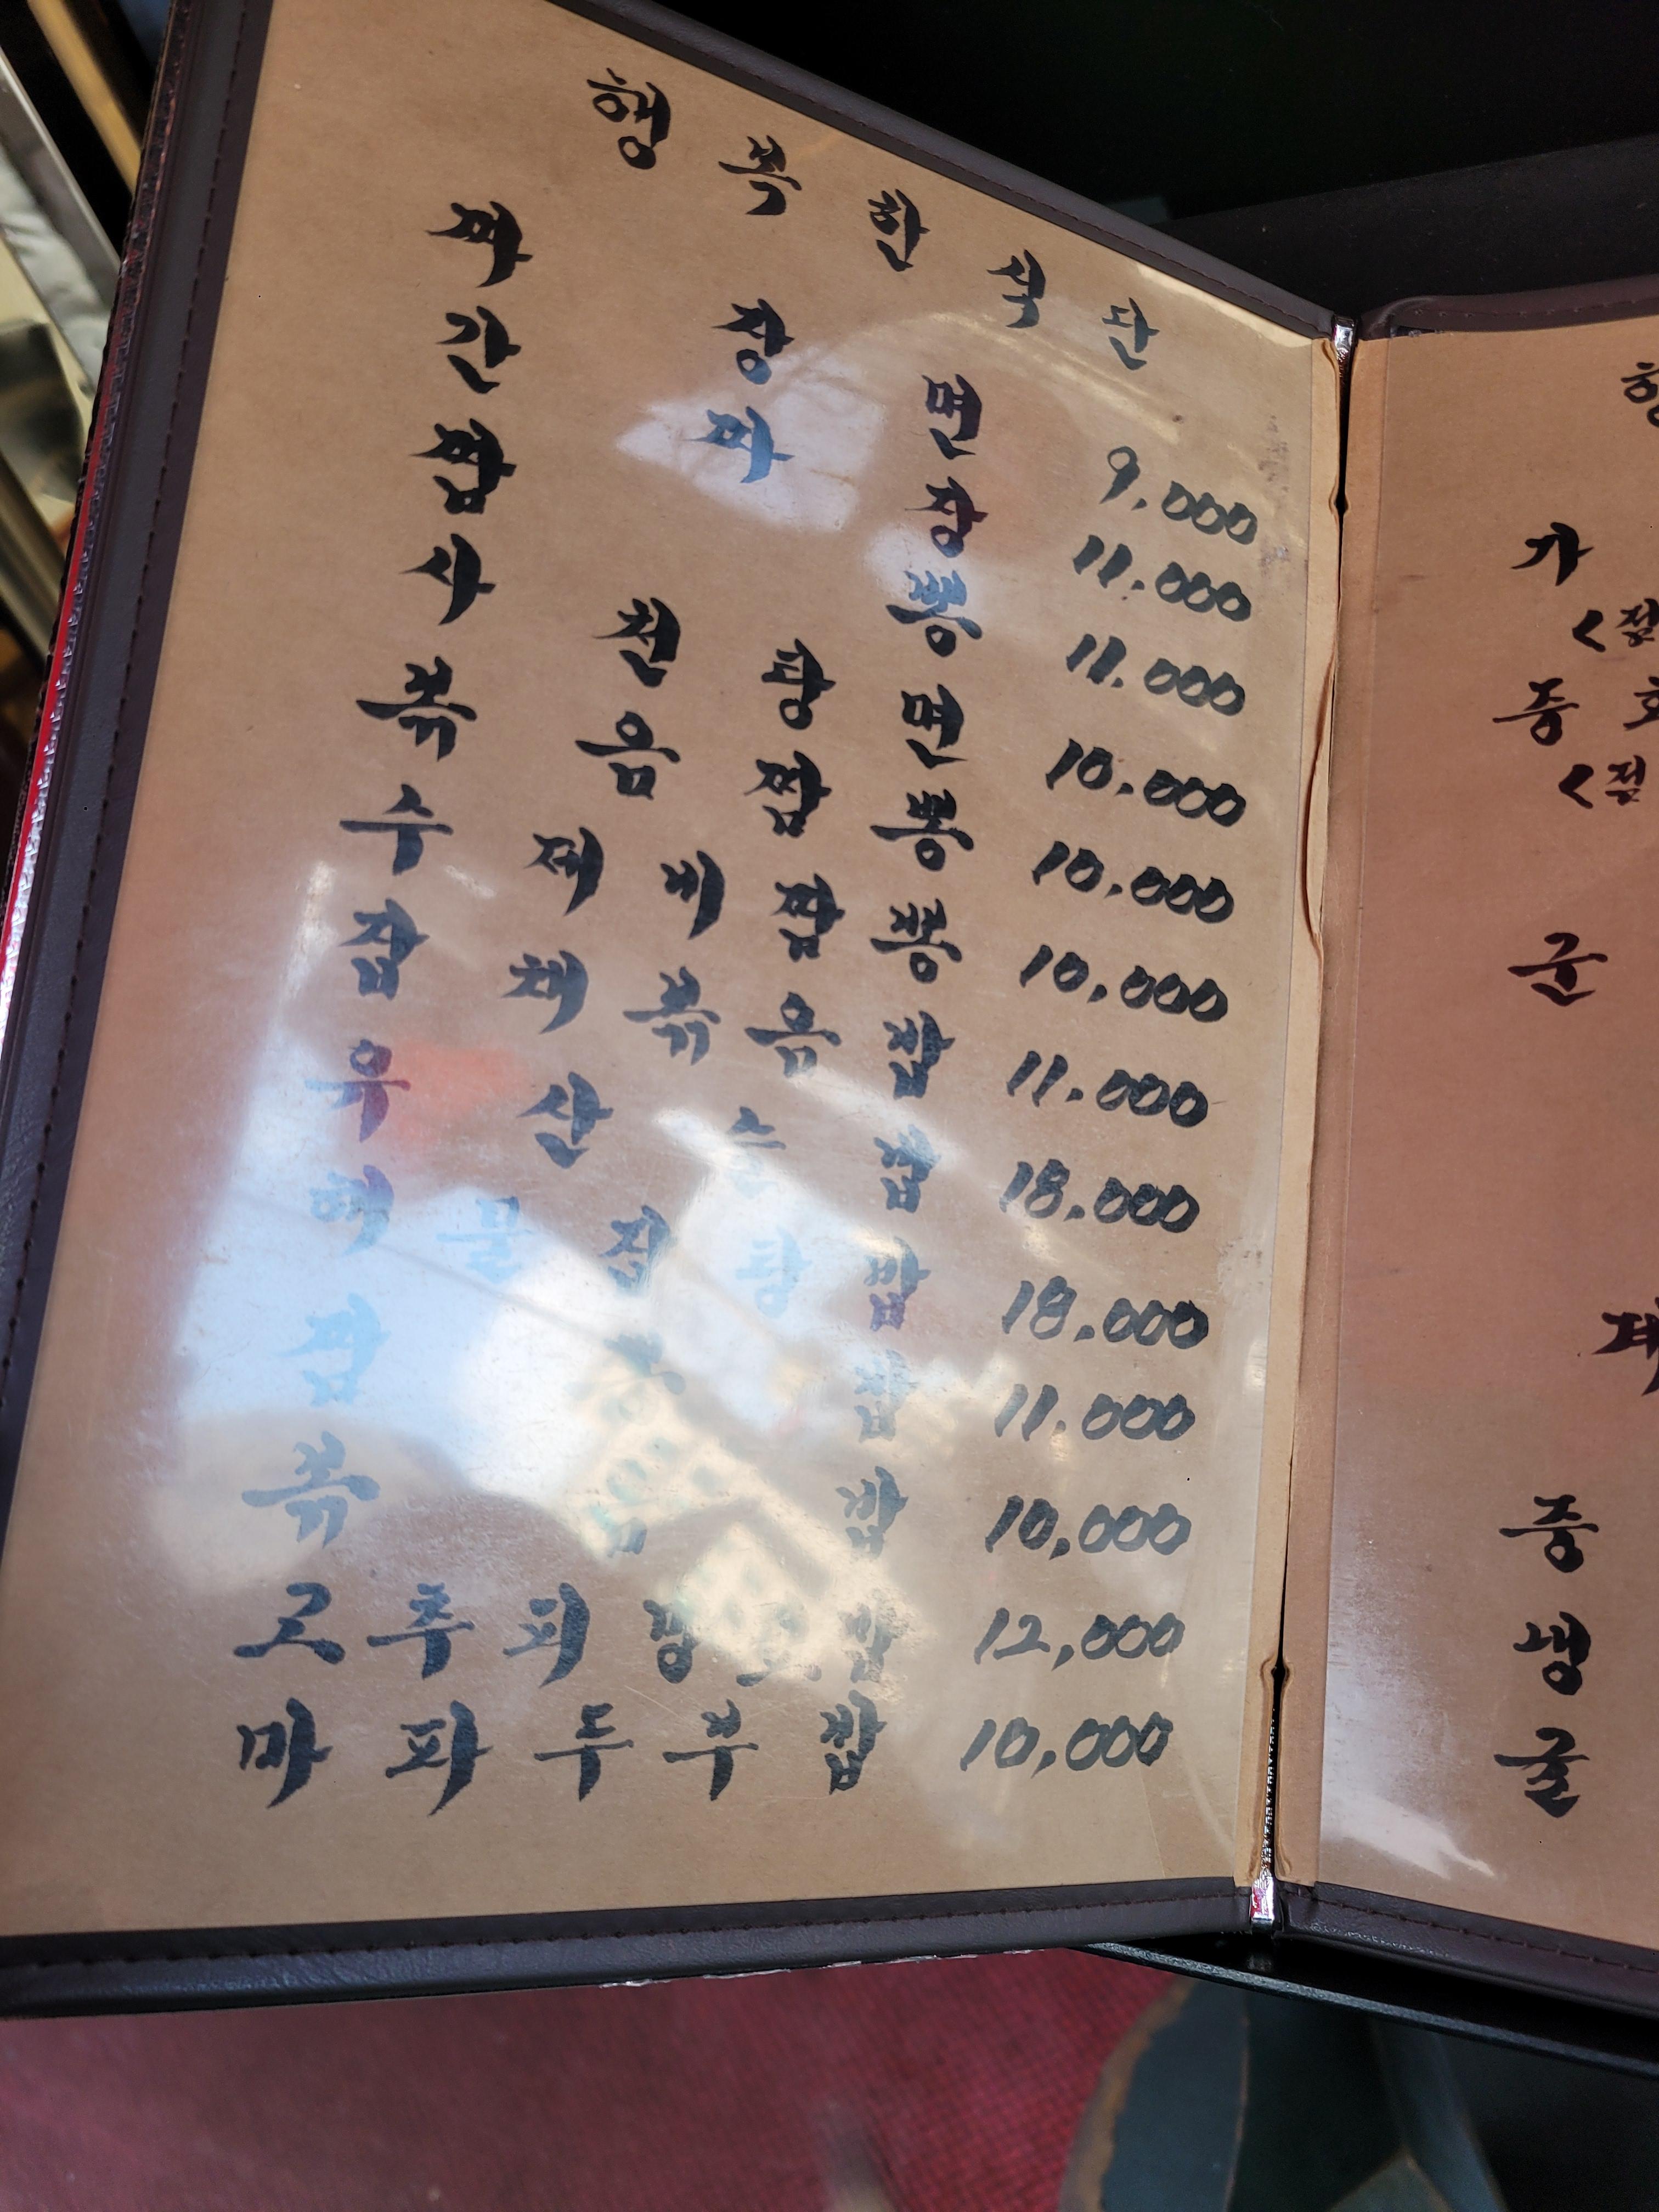 행 복 한 식 단
짜 장 면 9.000
간 짜 장 11.000
짬 뽕 11.000
사 천 탕 면 10.000
볶 음 짬 뽕 10.000
수 제 비 짬 뽕 10,000
잡 채 볶 음 밥 11.000
유 산 슬 밥 18.000
해 물 잡 탕 밥 18.000
짬 뽕 밥 11.000
볶 음 밥 10,000
고 추 피 망 밥 12,000
마 파 두 부 밥 10,000
가
중
군
중
냉
굴